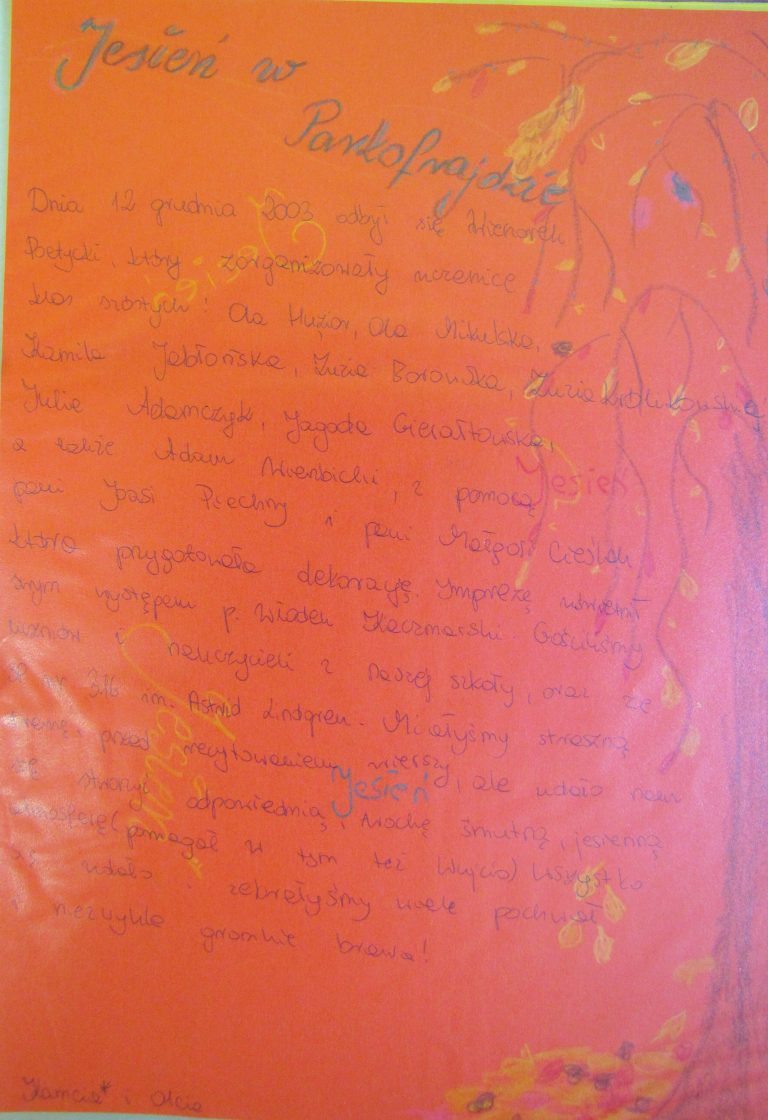 Jesień w
Parkofrajdzie
Dnia 12 grudnia 2003 odbył się Wieczorek
Poetycki, który zorganizowały uczennice
klas szóstych: Ola Huzior, Ola Mikulska,
Kamila Jabłońska, Zuzia Borowska, Zuzia Królikowska,
Julia Adamczyk, Jagoda Gierałtowska,
a także Adam Wierzbicki, z pomocą
pani Joasi Piechny i pani Małgosi Cieślak
która przygotowała dekorację. Imprezę uświetnił
swym występem p. Władek Kaczmarski. Gościliśmy
uczniów i nauczycieli z naszej szkoły, oraz ze
SP nr 316 im. Astrid Lindgren. Miałyśmy straszną
tremę, przed recytowaniem wierszy, ale udało nam
się stworzyć odpowiednią, trochę smutną, jesienną
atmosferę (pomagał w tym też Wujcio) Wszystko
się udało i zebrałyśmy wiele pochwał
i niezwykle gromkie brawa!
Jesień
Jesień
Jesień
Jesień
Kamcia* i Olcia